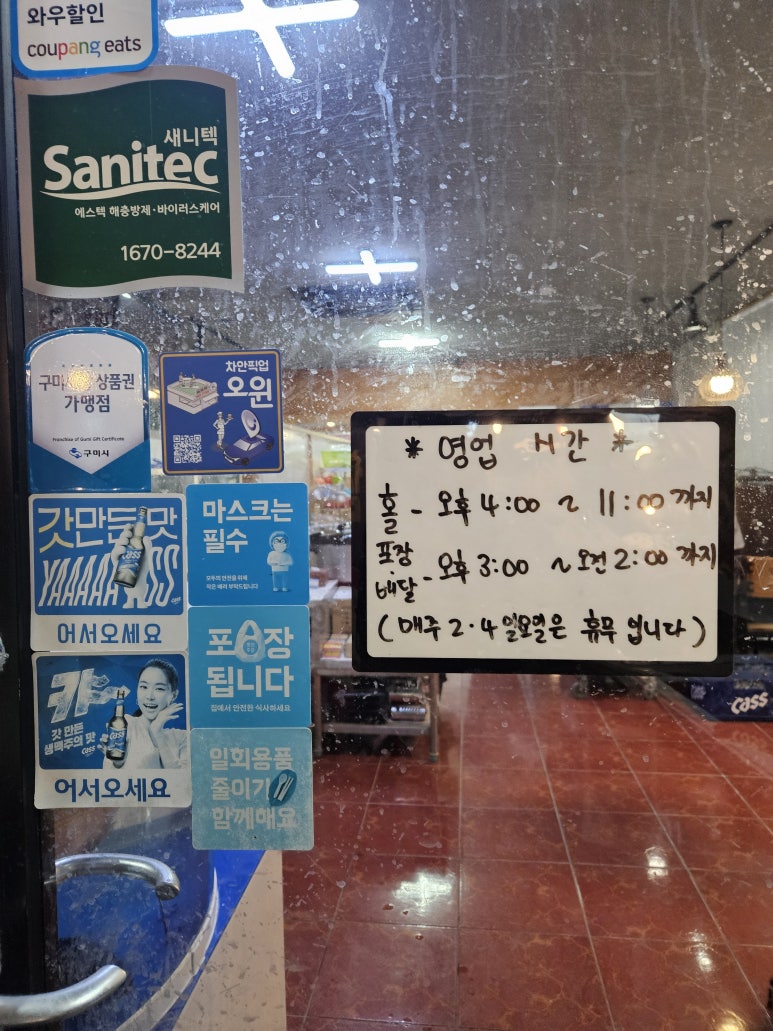 와우할인
coupang eats
새니텍
Sanitec
에스텍 해충방제·바이러스케어
1670-8244
구미 상품권
가맹점
Franchise of Gumi Gift Certificate
구미시
차안픽업
오윈
갓만든 맛
YAAAAA
Cass
어서오세요
마스크는
필수
모두의 안전을 위해
작은 배려 부탁드립니다
포장
됩니다
집에서 안전한 식사하세요
캬
갓 만든
생맥주의 맛
Cass
어서오세요
일회용품
줄이기
함께해요
* 영업 H간 *
홀 - 오후 4:00 ~ 11:00 까지
포장
배달 - 오후 3:00 ~ 오전 2:00 까지
(매주 2·4 일요일은 휴무 입니다)
Cass